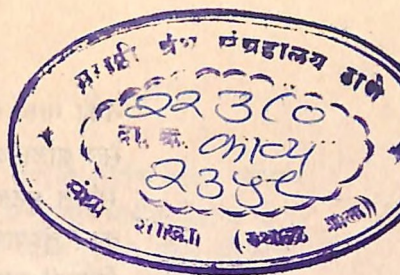 मराठी ग्रंथ संग्रहालय ठाणे
२२३८०
दा. क्र. काव्य
२३५९
शाखा